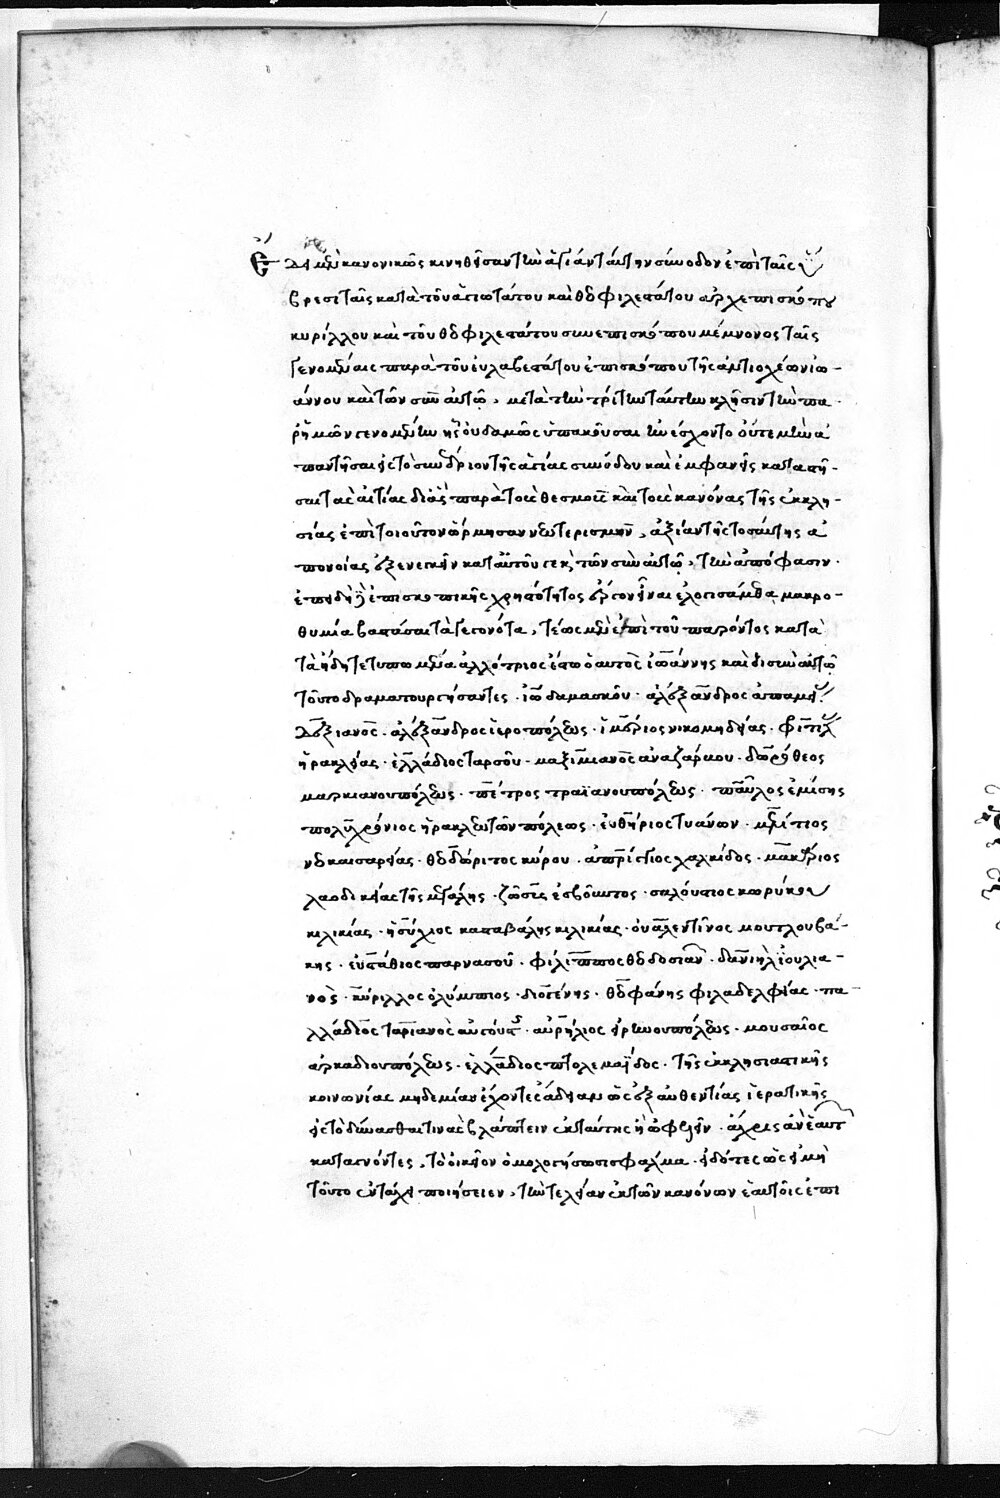 Ἔδει μὲν κανονικῶς κινηθεῖσαν τὴν ἁγίαν ταύτην σύνοδον ἐπὶ ταῖς ὕ
βρεσι ταῖς κατὰ τοῦ ἁγιωτάτου καὶ θεοφιλεστάτου ἀρχιεπισκόπου
κυρίλλου καὶ τοῦ θεοφιλεστάτου συνεπισκόπου μέμνονος ταῖς
γενομέναις παρὰ τοῦ εὐλαβεστάτου ἐπισκόπου τῆς ἀντιοχέων ἰω-
άννου καὶ τῶν σὺν αὐτῷ, μετὰ τὴν τρίτην ταύτην κλῆσιν τὴν πα
ρ' ἡμῶν γενομένην ἧς οὐδαμῶς ὑπακοῦσαι ἠνέσχοντο οὔτε μὴν ἀ
παντῆσαι εἰς τὸ συνέδριον τῆς ἁγίας συνόδου καὶ ἐμφανεῖς καταστῆ-
σαι τὰς αἰτίας δι' ἃς παρὰ τοὺς θεσμοὺς καὶ τοὺς κανόνας τῆς ἐκκλη-
σίας ἐπὶ τοιοῦτον ὥρμησαν νεωτερισμὸν, ἀξίαν τῆς τοσαύτης ἀ
πονοίας ἐξενεγκεῖν κατ' αὐτοῦ τε καὶ τῶν σὺν αὐτῷ, τὴν ἀπόφασιν.
ἐπειδὴ δὲ ἐπισκοπικῆς χρηστότητος ἔργον εἶναι ἐλογισάμεθα μακρο-
θυμία βαστάσαι τὰ γεγονότα, τέως μὲν ἐπὶ τοῦ παρόντος κατὰ
τὰ ἤδη τετυπωμένα ἀλλότριος ἔστω ὁ αὐτὸς ἰωάννης καὶ οἱ σὺν αὐτῷ
τοῦτο δραματουργήσαντες. ἰω δαμασκοῦ. ἀλέξανδρος ἀπαμεί
δεξιανὸς. ἀλέξανδρος ἱεροπόλεως. ἱμέριος νικομηδείας. φιτιλ
ἡρακλείας. ἑλλάδιος ταρσοῦ. μαξιμιανὸς ἀναζάρκου. δωρόθεος
μαρκιανουπόλεως. πέτρος τραϊανουπόλεως. παῦλος ἐμίσης
πολυχρόνιος ἡρακλεωτῶν πόλεως. εὐθήριος τυάνων. μελέτιος
νεοκαισαρείας. θεοδώριτος κύρου. ἀπρίγγιος χαλκίδος. μακάριος
λαοδικείας τῆς μεγάλης. ζῶσις ἐσβοῦντος. σαλούστιος κωρύκου
κιλικίας. ἡσύχιος κασταβάλης κιλικίας. οὐαλεντῖνος μουτλουβά-
κης. εὐστάθιος παρνασοῦ. φίλιππος θεοδοσιαν. δανιὴλ ἰουλια-
νὸς. κύριλλος ὀλύμπιος. διογένης. θεοφάνης φιλαδελφείας. πα-
λλάδιος ταριανὸς αὐγούστ. αὐρήλιος εἰρηνουπόλεως. μουσαῖος
ἀρκαδιουπόλεως. ἑλλάδιος πτολεμαΐδος. τῆς ἐκκλησιαστικῆς
κοινωνίας μηδεμίαν ἔχοντες ἄδειαν ὡς ἐξ αὐθεντίας ἱερατικῆς
εἰς τὸ δύνασθαι τινὰς βλάπτειν ἐκ ταύτης ἢ ὠφελεῖν. ἄχρις ἂν ἑαυτ
καταγνόντες, τὸ οἰκεῖον ὁμολογήσωσι σφάλμα. εἰδότες ὡς εἰ μὴ
τοῦτο ἐν τάχει ποιήσειεν, τὴν τελείαν ἐκ τῶν κανόνων ἑαυτοῖς ἐπι